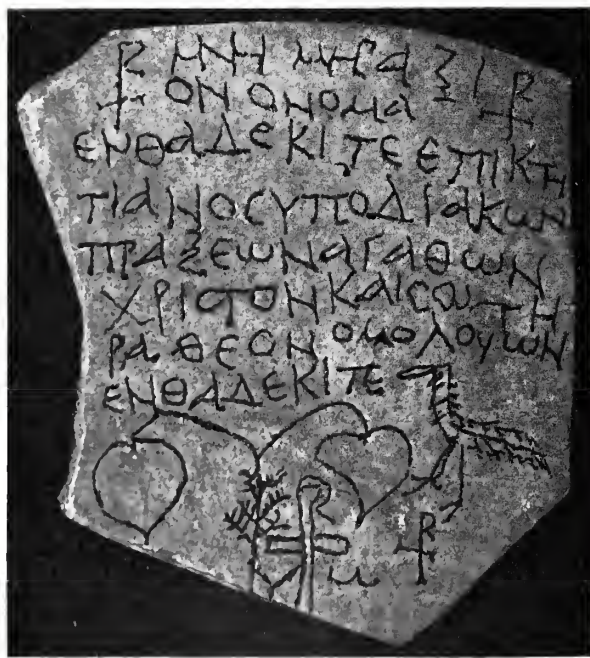 ⳨ ΜΝΗΜΗϹ ΑΞΙ ⳨
ΟΝ ΟΝΟΜΑ
ΕΝΘΑΔΕ ΚΙΤΕ ΕΠΙΚΤΗ
ΤΙΑΝΟϹ ΥΠΟΔΙΑΚΩΝ
ΠΡΑΞΕΩΝ ΑΓΑΘΩΝ
ΧΡΙϹΤΟΝ ΚΑΙ ϹΩΤΗ
ΡΑ ΘΕΟΝ ΟΜΟΛΟΥΩΝ
ΕΝΘΑΔΕ ΚΙΤΕ
⳨ Ω ⳨